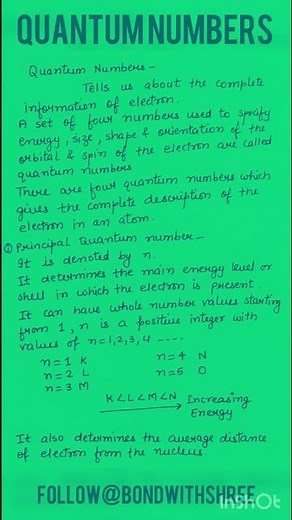 QUANTUM NUMBERS
Quantum Numbers –
Tells us about the complete
information of electron.
A set of four numbers used to specify
energy, size, shape & orientation of the
orbital & spin of the electron are called
quantum numbers
There are four quantum numbers which
gives the complete description of the
electron in an atom.
① Principal Quantum number –
It is denoted by n.
It determines the main energy level or
shell in which the electron is present.
It can have whole number values starting
from 1, n is a positive integer with
values of n=1,2,3,4 ----.
n=1 K n=4 N
n=2 L n=5 O
n=3 M
K<L<M<N Increasing
Energy
It also determines the average distance
of electron from the nucleus.
FOLLOW@BONDWITHSHREE
InShOt